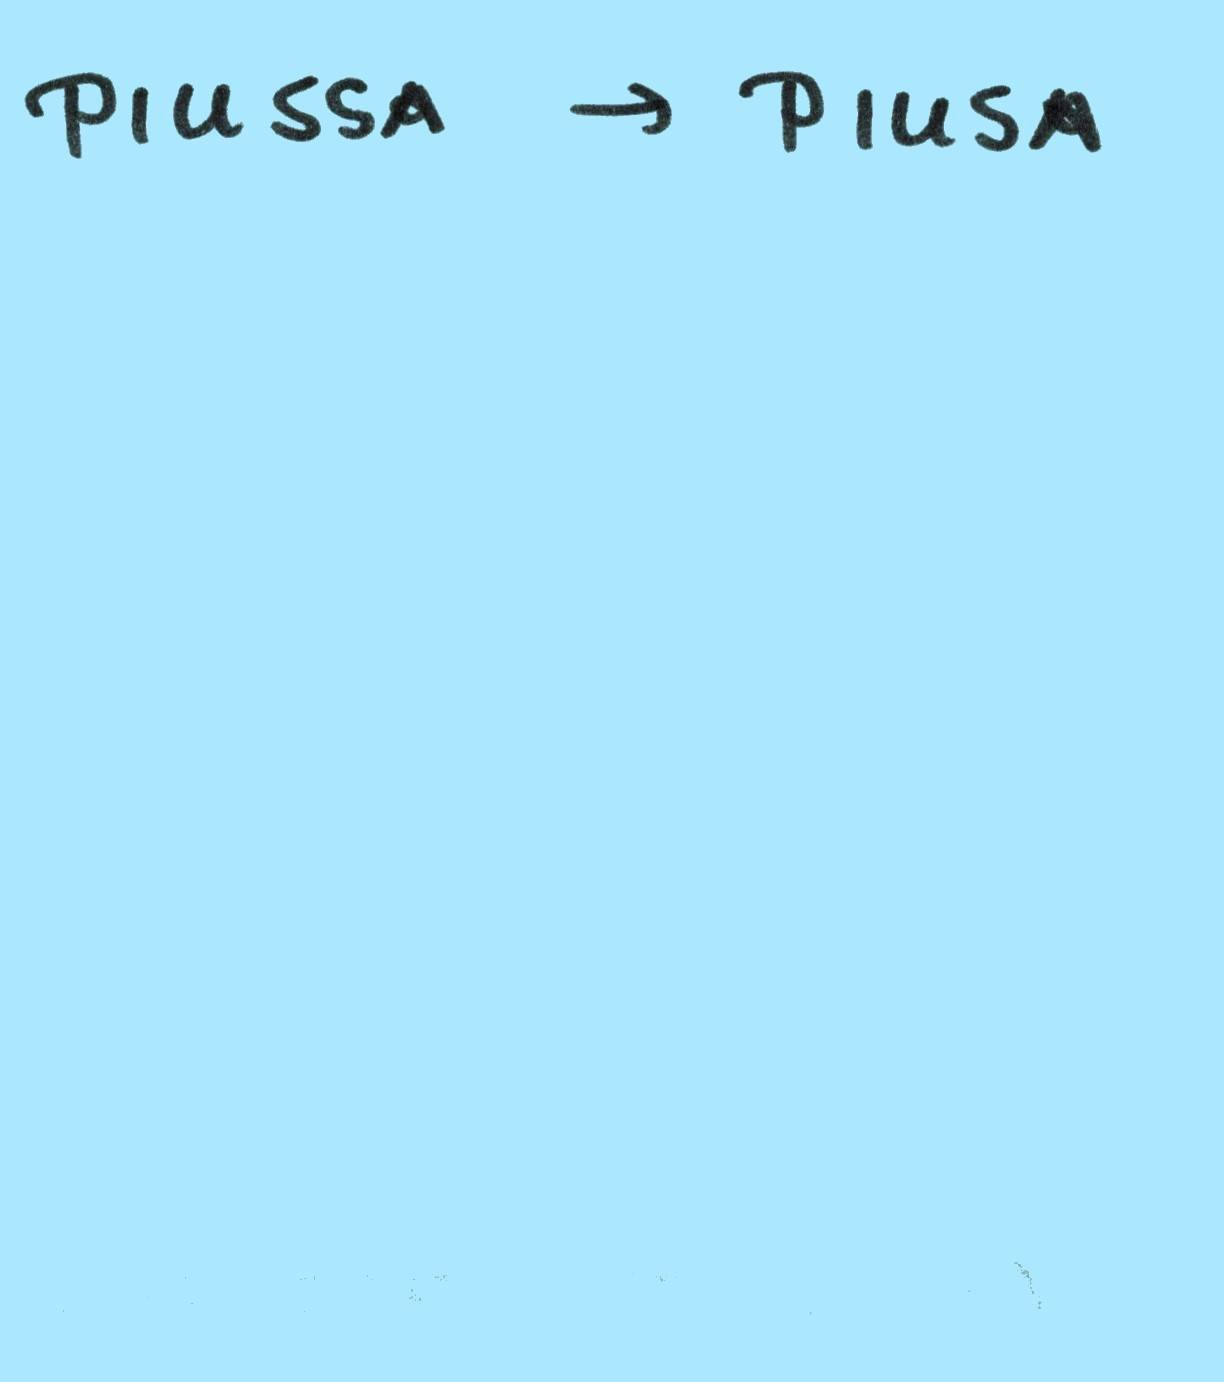 PIUSSA → PIUSA